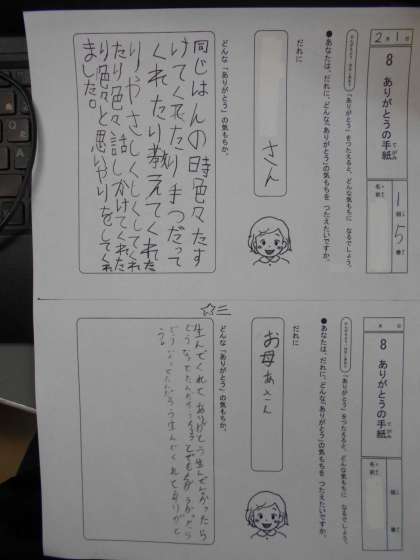 2月1日
8 ありがとうの手紙
てがみ
1組
5番
「ありがとう」をつたえると、どんな気もちに なるでしょう。
●あなたは、だれに、どんな「ありがとう」の気もちを つたえたいですか。
だれに
さん
どんな「ありがとう」の気もちか。
同じはんの時色々たす
けてくれたり手つだって
くれたり教えてくれた
りやさしくしてくれ
たり色々話しかけてくれた
り色々と思いやりをしてくれ
ました。
月 日
8 ありがとうの手紙
てがみ
組
番
「ありがとう」をつたえると、どんな気もちに なるでしょう。
●あなたは、だれに、どんな「ありがとう」の気もちを つたえたいですか。
だれに
お母あさん
☆三
どんな「ありがとう」の気もちか。
生んでくれてありがとう生んでなかったら
どうなってたんだろう
生んでくれてありがと
う。